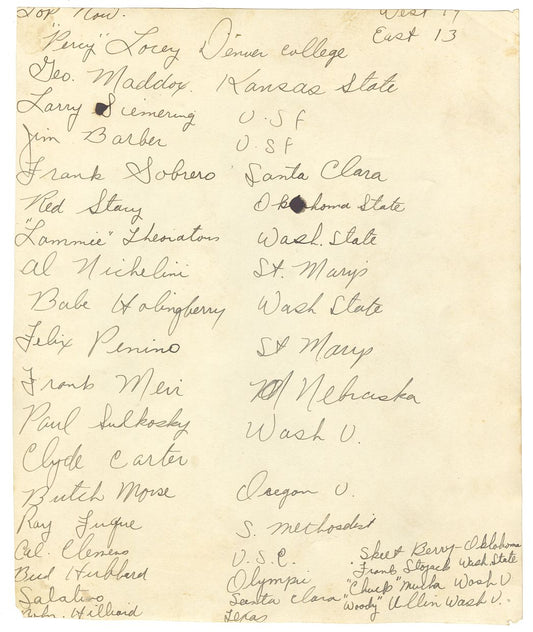 Top Row.
West 19
East 13
"Percy" Locey Denver college
Geo. Maddox. Kansas State
Larry Siemering U.S.F
Jim Barber U.S.F
Frank Sobrero Santa Clara
Red Stacy Oklahoma State
"Lammie" Theodratus Wash. State
Al Nichelini St. Mary's
Babe Holingberry Wash State
Felix Penino St Marys
Frank Meir Nebraska
Paul Sulkosky Wash U.
Clyde Carter
Butch Morse Oregon U.
Ray Fuque S. Methodist
Cal. Clemens U.S.C.
Skeet Berry-Oklahoma
Frank Stojack Wash State
Bud Hubbard Olympic
"Chuck" Mucha Wash U
Salatino Santa Clara
"Woody" Ullin Wash U.
Hilliard Texas